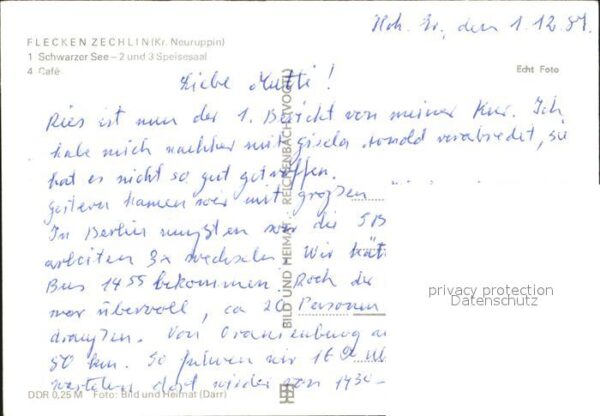 Hoh. Gr., den 1.12.87.
FLECKEN ZECHLIN (Kr. Neuruppin)
1 Schwarzer See – 2 und 3 Speisesaal
4 Café
Echt Foto
Liebe Mutti!
Dies ist nun der 1. Bericht von meiner Kur. Ich
habe mich nachher mit gisela verabredet, sie
hat es nicht so gut getroffen.
Gestern kamen wir mit großen
In Berlin mußten wir die SB
arbeiten 3x wechseln. Wir hät
Bus 14 55 bekommen. Doch der
war übervoll, ca 20 Personen
draußen. Von Oranienburg
50 km. So fuhren wir 16
warteten dort wieder von 17 30 –
BILD UND HEIMAT · REICHENBACH (VOGTL)
privacy protection
Datenschutz
DDR 0,25 M Foto: Bild und Heimat (Darr)